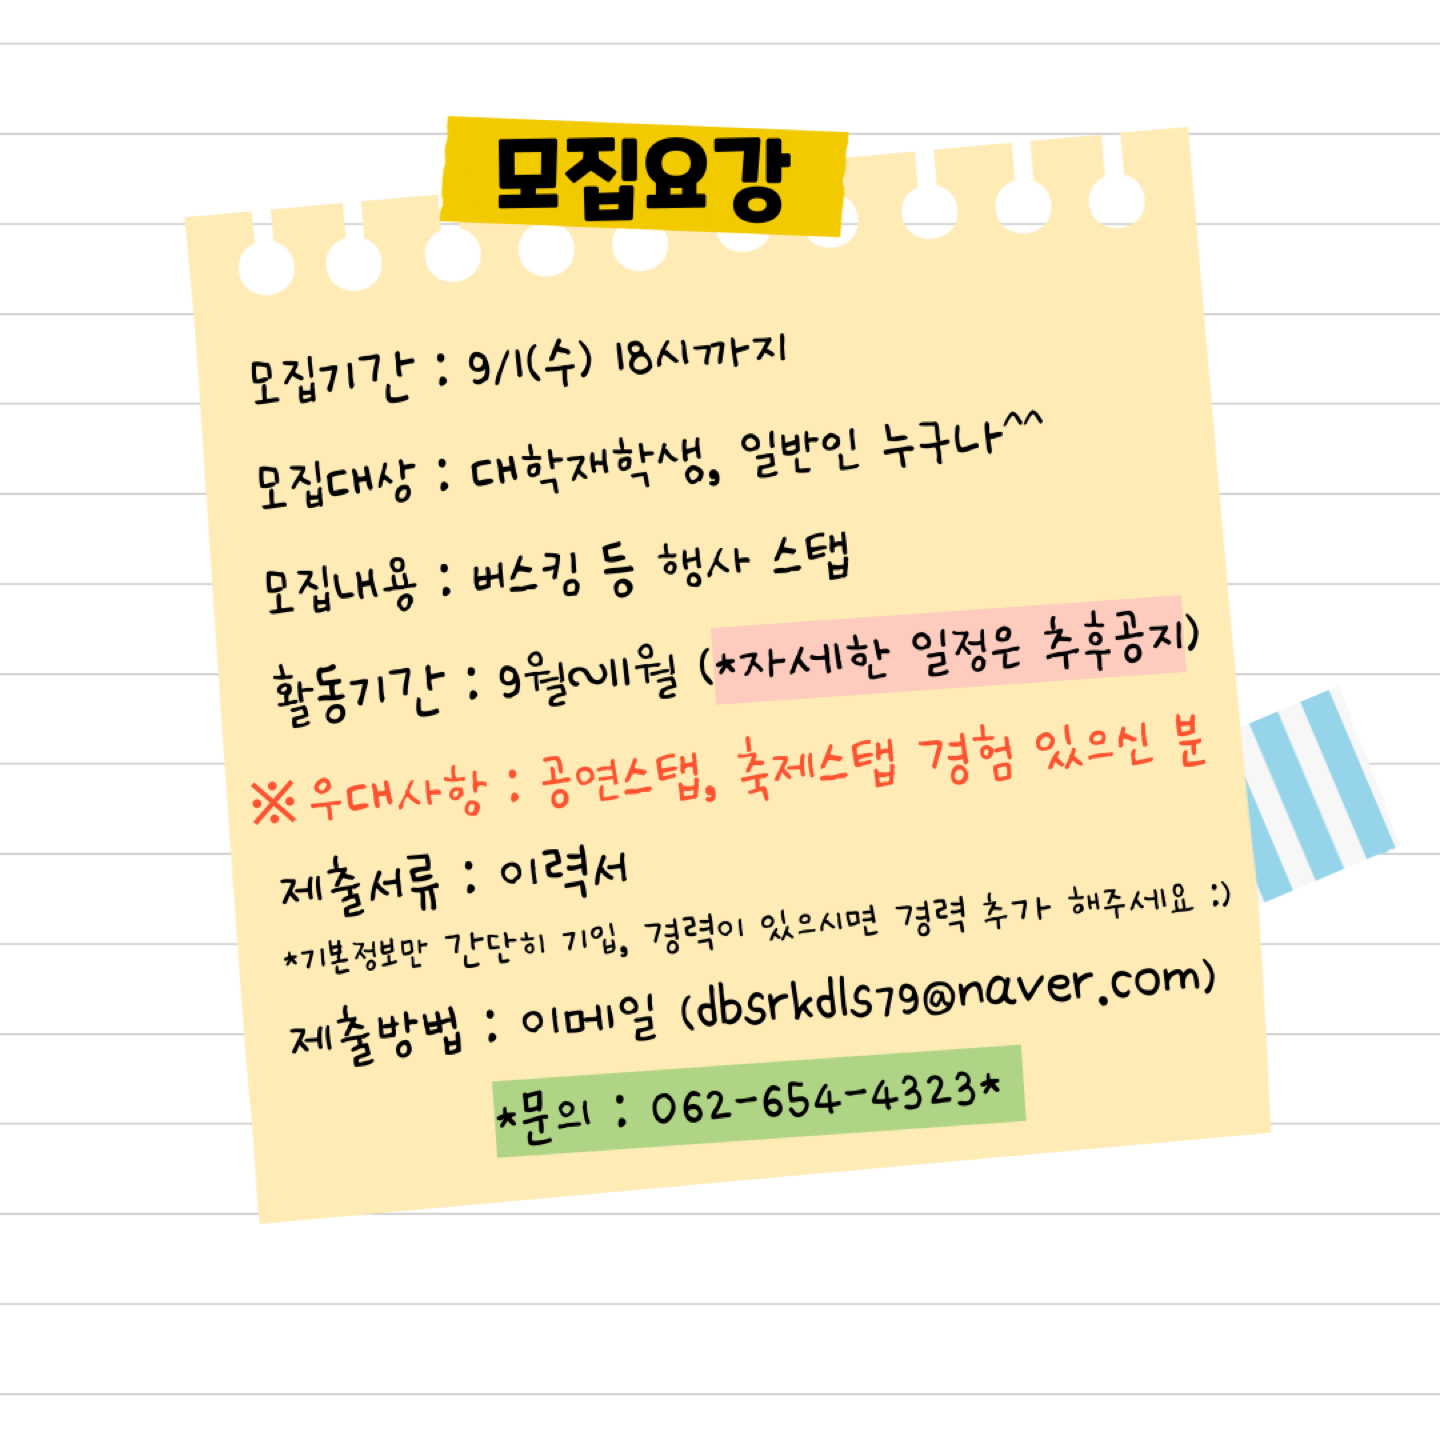 모집요강
모집기간 : 9/1(수) 18시까지
모집대상 : 대학재학생, 일반인 누구나^^
모집내용 : 버스킹 등 행사 스탭
활동기간 : 9월~11월 (*자세한 일정은 추후공지)
※우대사항 : 공연스탭, 축제스탭 경험 있으신 분
제출서류 : 이력서
*기본정보만 간단히 기입, 경력이 있으시면 경력 추가 해주세요 :)
제출방법 : 이메일 (dbsrkdls79@naver.com)
*문의 : 062-654-4323*